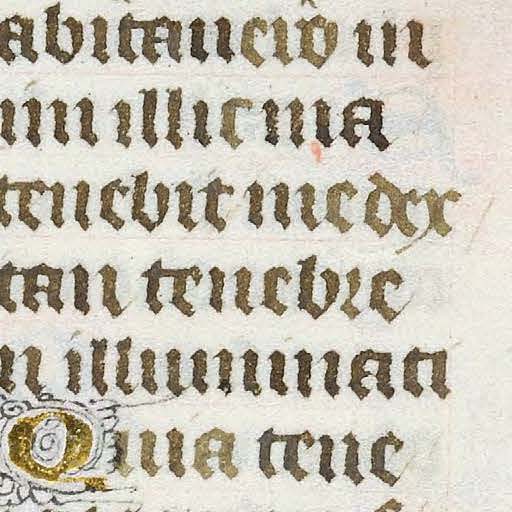 abitauero in
nim illic ma
tenebit me dex
tan tenebre
illuminati
Quia tene